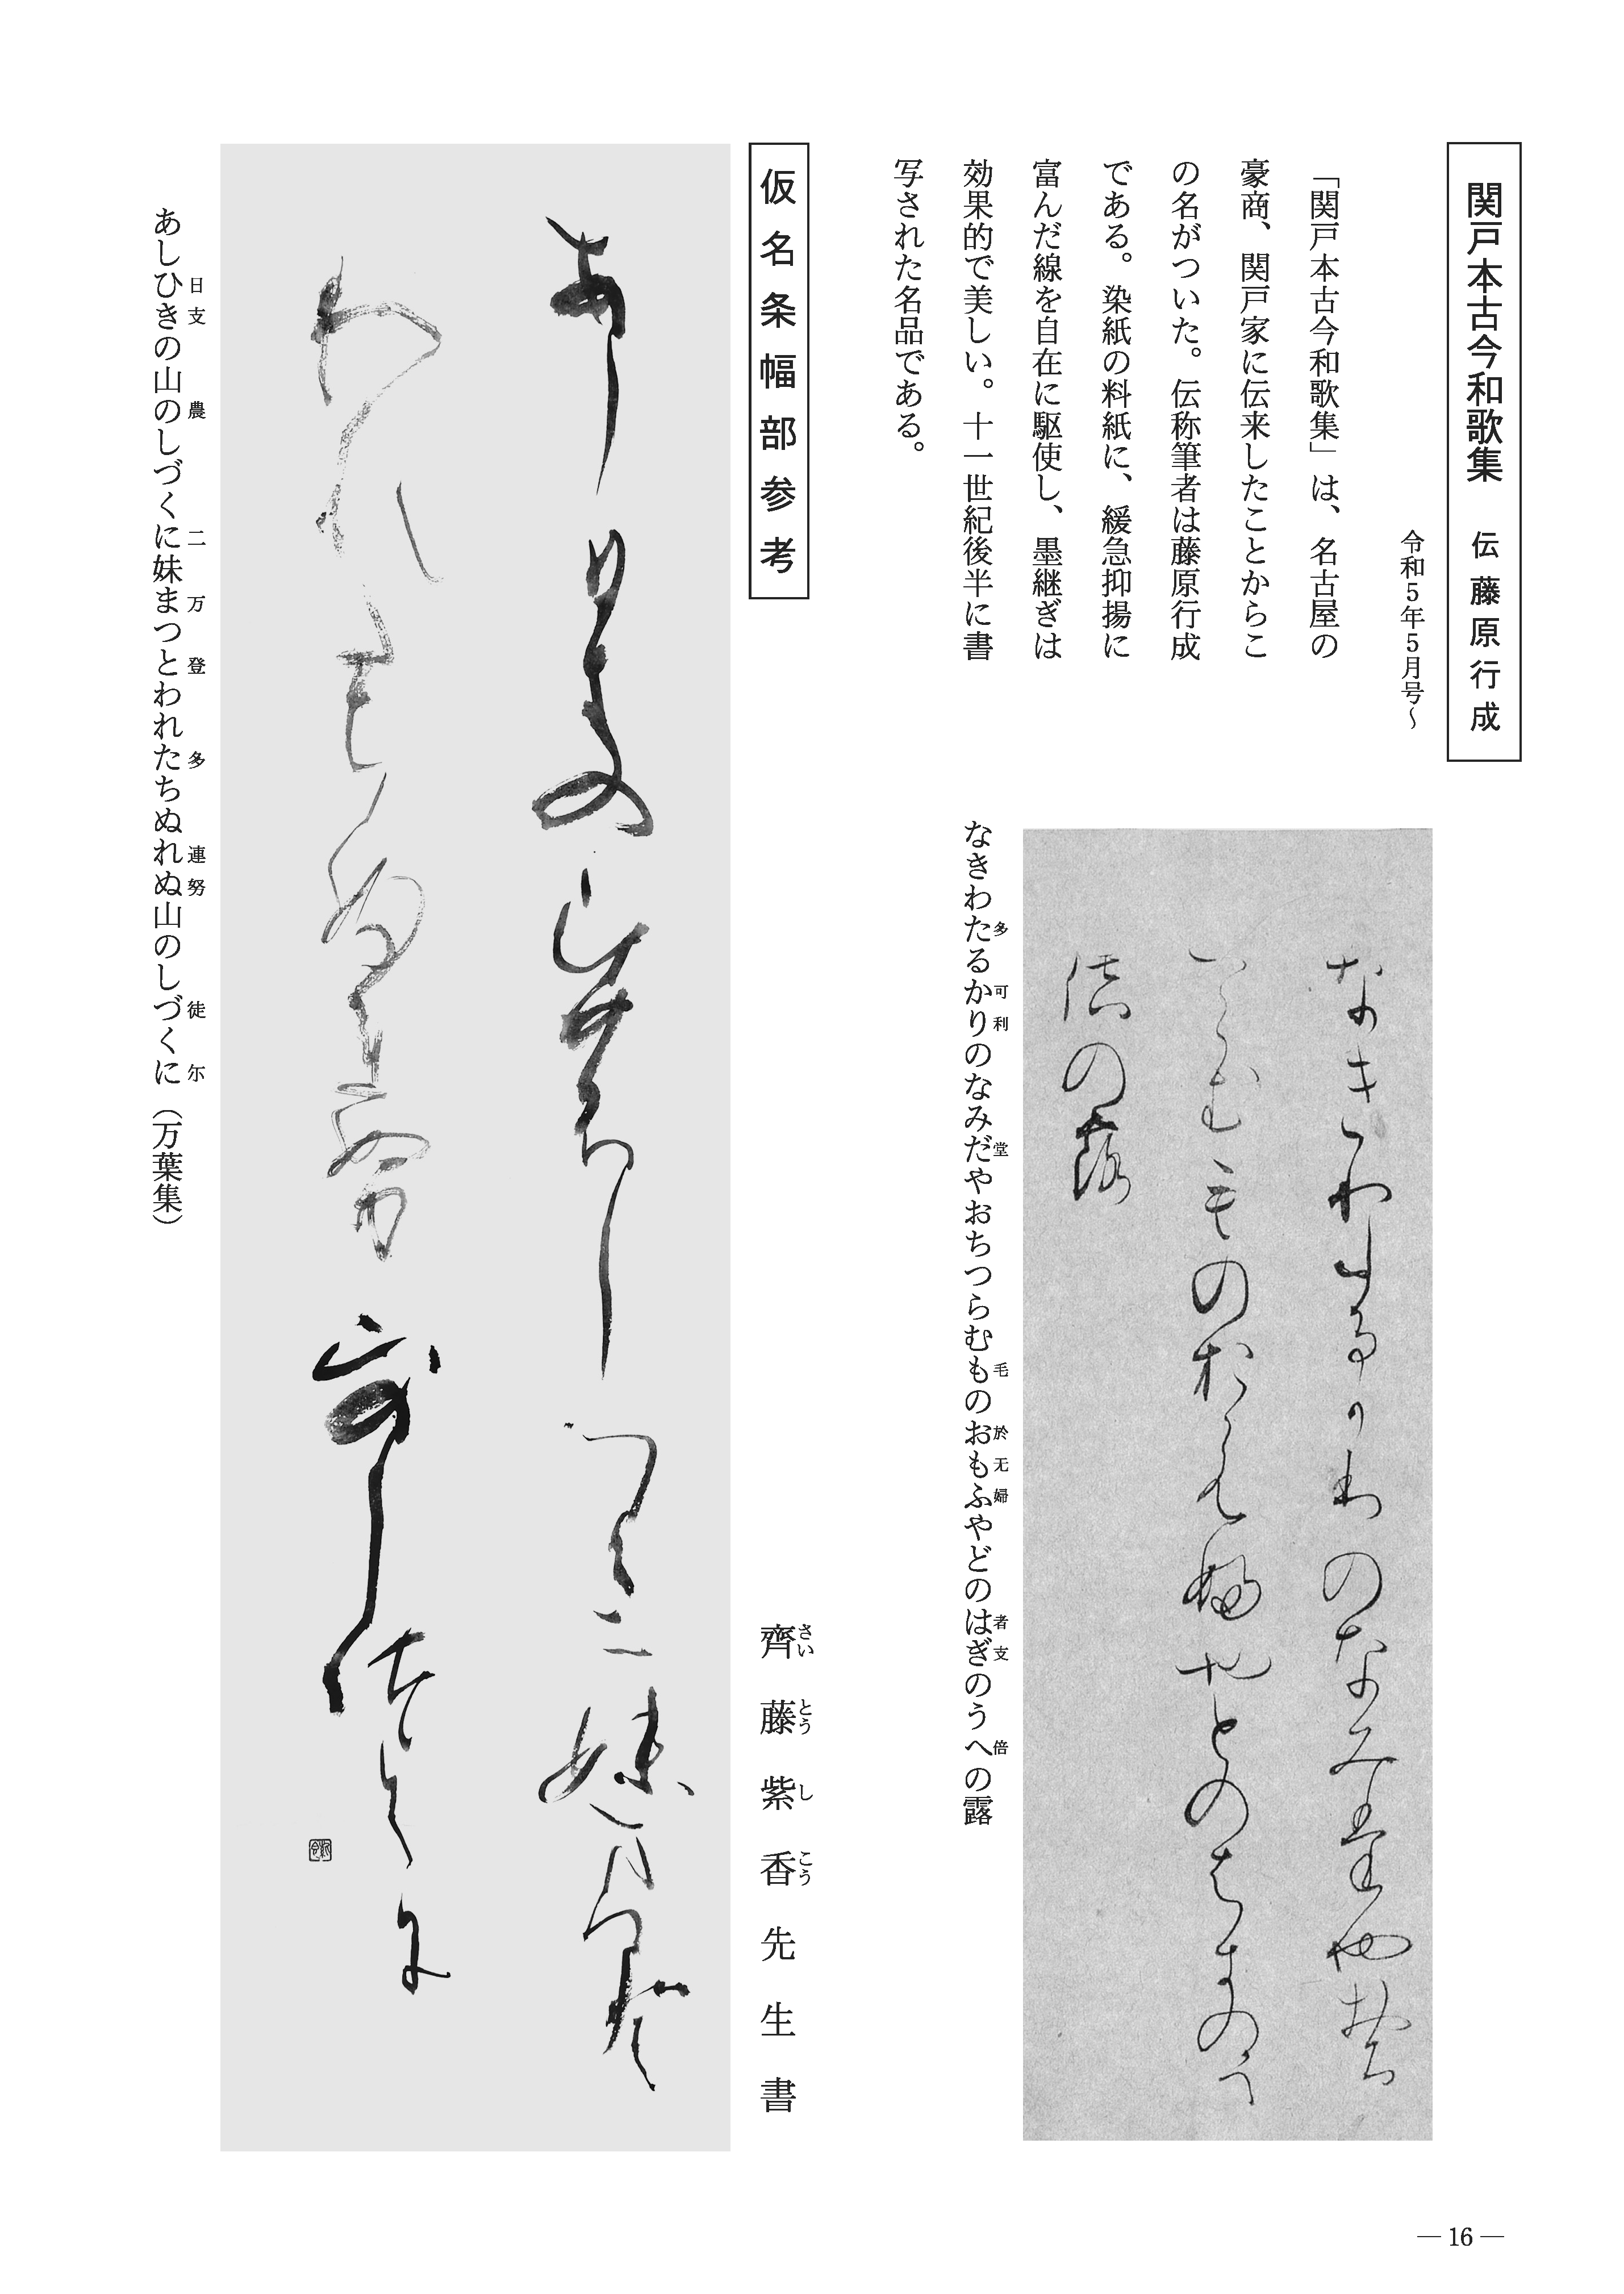 関戸本古今和歌集　伝藤原行成
令和5年5月号～
「関戸本古今和歌集」は、名古屋の
豪商、関戸家に伝来したことからこ
の名がついた。伝称筆者は藤原行成
である。染紙の料紙に、緩急抑揚に
富んだ線を自在に駆使し、墨継ぎは
効果的で美しい。十一世紀後半に書
写された名品である。
なきわたるかりのなみだやおちつらむものおもふやどのはぎのうへの露
多可利堂毛於无婦者支倍
仮名条幅部参考
齊藤紫香先生書
さいとうしこう
あしひきの山のしづくに妹まつとわれたちぬれぬ山のしづくに（万葉集）
日支農二万登多連努徒尓
— 16 —